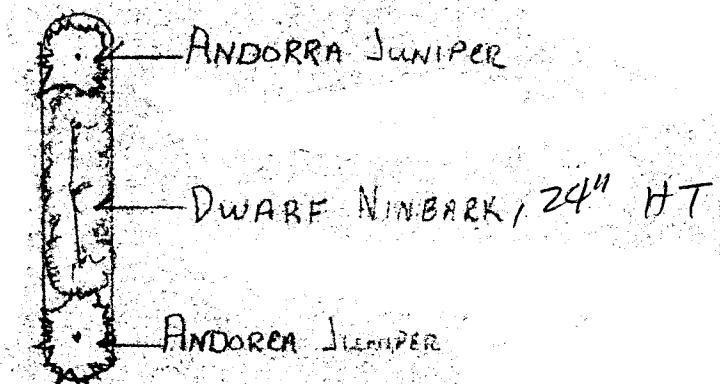 ANDORRA JUNIPER
DWARF NINBARK, 24" HT
ANDORRA JUNIPER